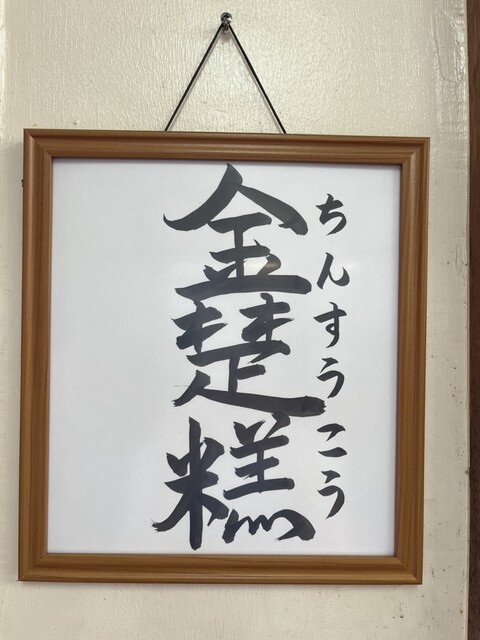 ちんすうこう
金楚糕